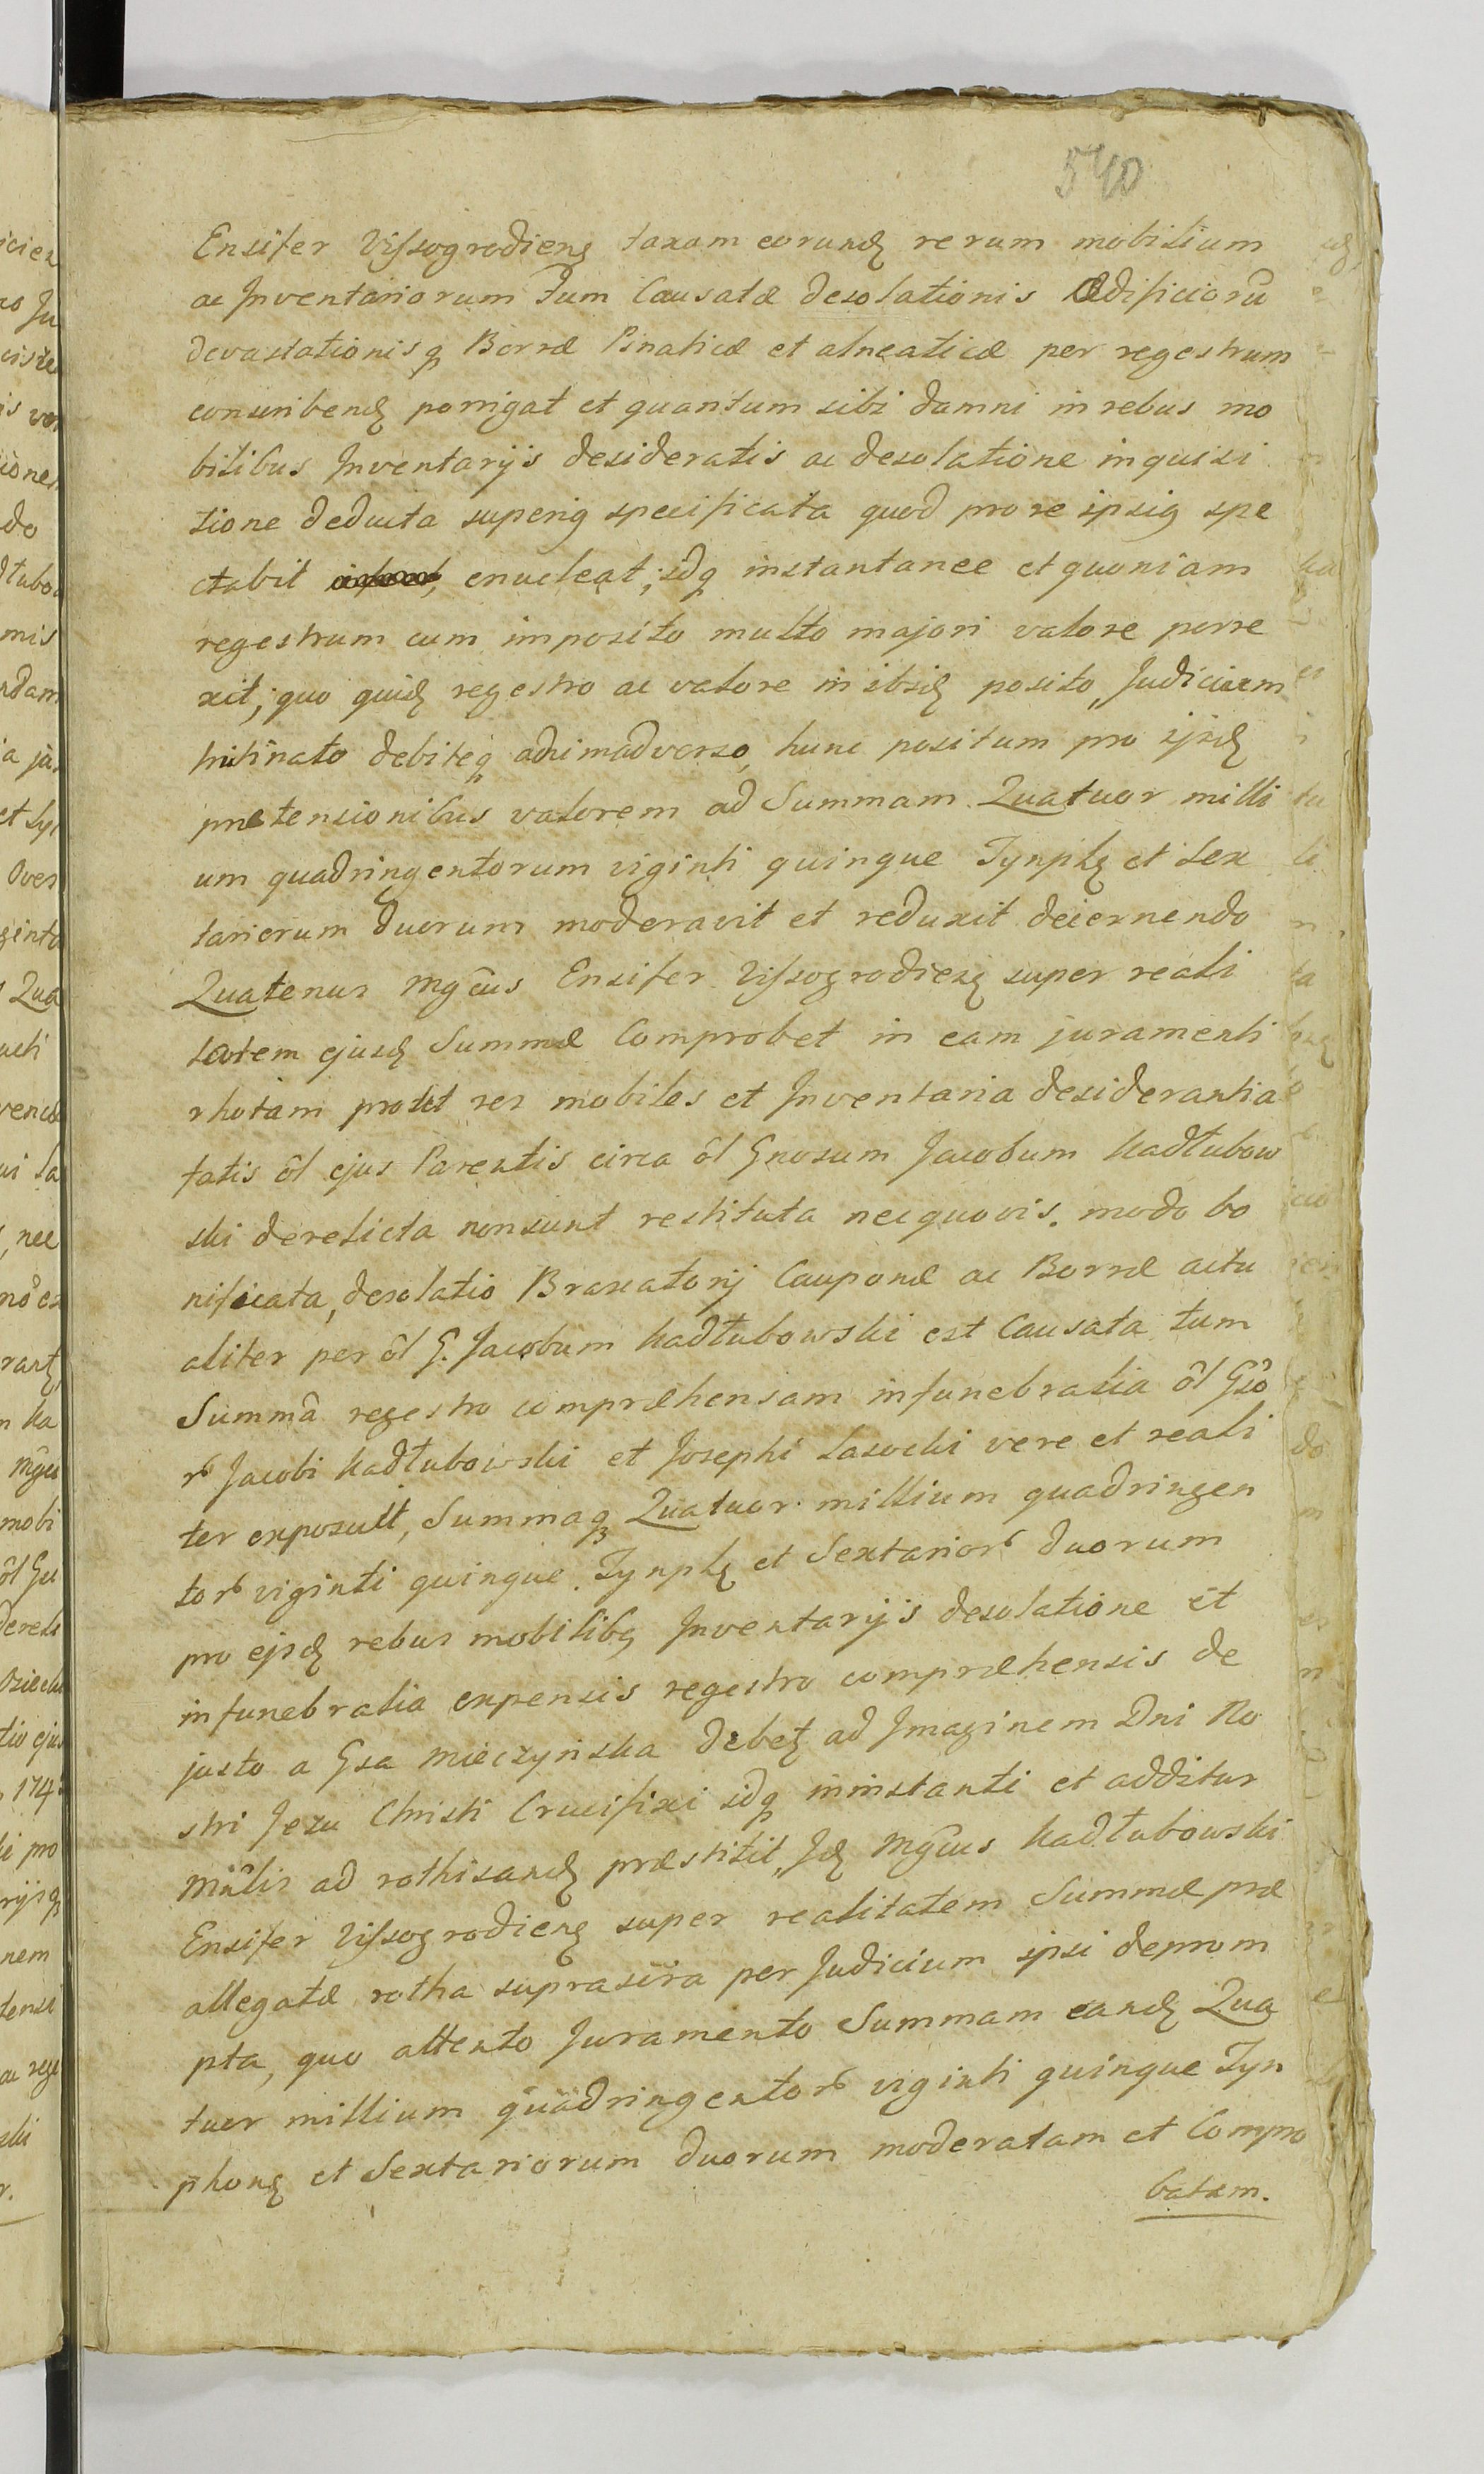 540
Ensifer Vissogrodiens taxam eorund rerum mobilium
ac Inventariorum tum Causatæ desolationis Ædificiorũ
devastationisq Borræ Pinaticæ et alneaticæ per regestrum
conscribend porrigat et quantum sibi damni in rebus mo
bilibus Inventarijs desideratis ac desolatione inquisi
tione deducta superiq specificata quod pro re ipsiq spe
ctabit enucleat; idq instantanee et quoniam
regestrum cum imposito multo majori valore porre
xit; quo quid regestro ac valore in ibid posito, Judicium
trutinato debiteq adnimadverso, hunc positum pro ijsd
prætensionibus valorem ad Summam Quatuor milli
um quadringentorum viginti quinque Tynph et sex
tariorum duorum moderavit et reduxit decernendo
Quatenus Mgcus Ensifer Vissogrodiens super reali
tatem ejusd Summæ Comprobet in eam juramenti
rhotam prout res mobiles et Inventaria desiderantia
fatis ôl ejus Parentis circa ôl Gnosum Jacobum Kadłubow
ski derelicta non sunt restituta nec quovis modo bo
nificata, desolatio Braxatorij Cauponæ ac Borræ actu
aliter per ôl G. Jacobum Kadłubowski est Causata tum
Summâ regestro compræhensam in funebralia ôl Gso
rb Jacobi Kadłubowski et Josephi Lasocki vere et reali
ter exposuit, Summaq Quatuor millium quadringen
torb viginti quinque Tynph et Sextariorb duorum
pro ejsd rebus mobilibq Inventarijs desolatione et
in funebralia expensis regestro compræhensis de
justo a Gsa Mieczyńska debet ad Imaginem Dni No
stri Jezu Christi Crucifixi idq in instanti et additur
Mnlis ad rothisand præstitit, Id Mgcus Kadłubowski
Ensifer Vissogrodiens super realitatem Summæ præ
allegatæ rotha suprascra per Judicium ipsi deprom
pta, quo attento Juramento Summam eand Qua
tuor millium quadringentorb viginti quinque Tyn
phons et Sextariorum duorum moderatam et Compro
batam.